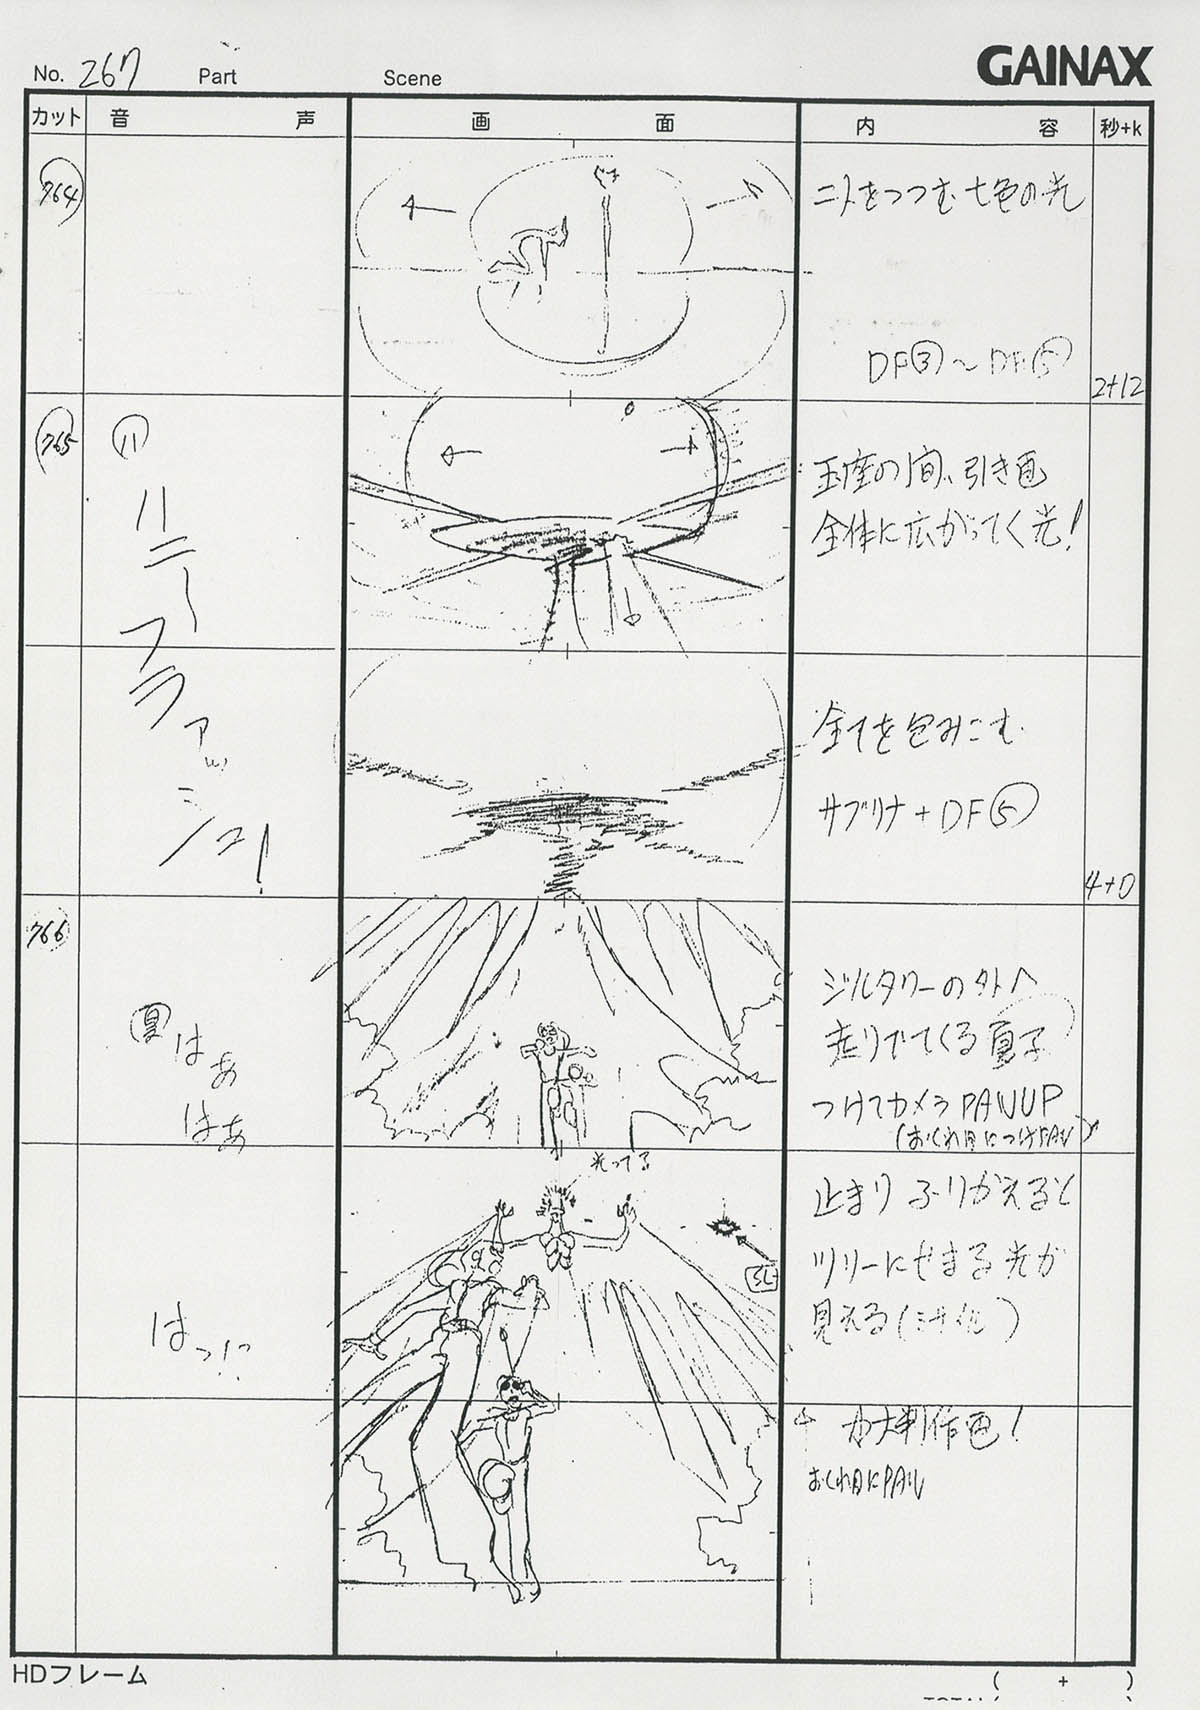 No. 267 Part Scene GAINAX
カット 音 声 画 面 内 容 秒+k
764
二人をつつむ七色の光
DF③〜DF⑤
2+12
765
ハ
ハニーフラァッシュ!
玉座の間、引き画
全体に広がってく光!
全てを包みこむ
サブリナ+DF⑤
4+0
766
夏 はぁ
はぁ
ジルタワーの外へ
走りでてくる夏子
つけてカメラPANUP
(おくれ目につけPAN)
光ってる
SL
はっ!?
止まりふりかえると
ツリーにせまる光が
見える(ミサイル)
大判作画!
おくれ目にPAN
HDフレーム
( + )
TOTAL(